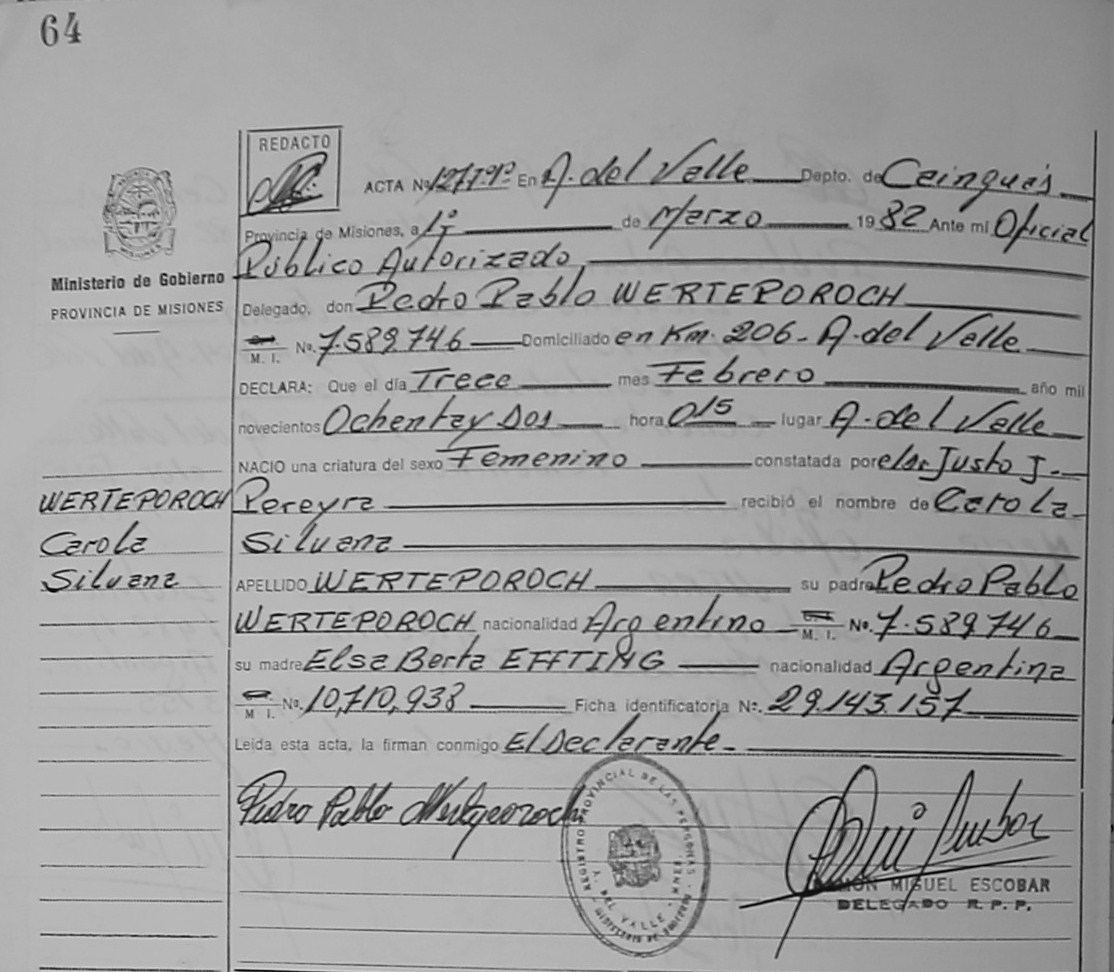 64
REDACTO
ACTA Nº 127Tº1º En A. del Valle Depto. de Cainguás
Provincia de Misiones, a 1º de Marzo 1982 Ante mi Oficial
Público Autorizado,
Ministerio de Gobierno
PROVINCIA DE MISIONES
Delegado, don Pedro Pablo WERTEPOROCH
M. I. Nº. 7.589.746 Domiciliado en Km. 206 - A. del Valle
DECLARA: Que el día Trece mes Febrero año mil
novecientos Ochenta y Dos hora 015 lugar A. del Valle
NACIO una criatura del sexo Femenino constatada por el Dr. Justo J.
WERTEPOROCH Pereyra recibió el nombre de Carola
Carola Silvana
Silvana APELLIDO WERTEPOROCH su padre Pedro Pablo
WERTEPOROCH nacionalidad Argentino M. I. Nº. 7.589.746
su madre Elsa Berta EFFTING nacionalidad Argentina
M I. Nº. 10,710,938 Ficha identificatoria Nº. 29.143.157
Leída esta acta, la firman conmigo El Declarante.
Pedro Pablo
REGISTRO PROVINCIAL DE LAS PERSONAS
A. DEL VALLE
RAMÓN MIGUEL ESCOBAR
DELEGADO R. P. P.